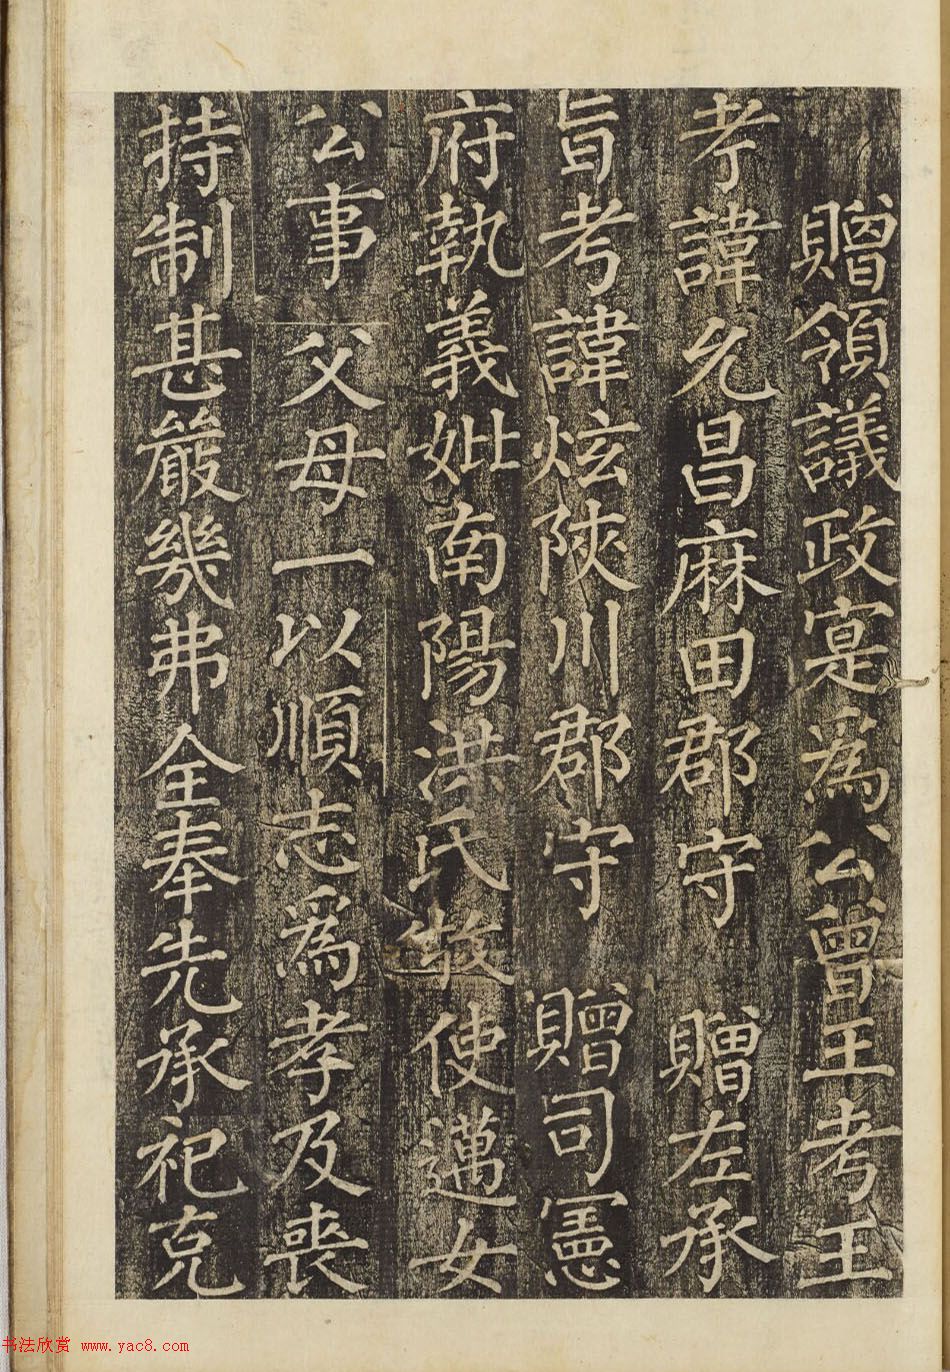 贈領議政寔爲公曾王考王
考諱允昌麻田郡守 贈左承
旨考諱炫陜川郡守 贈司憲
府執義妣南陽洪氏牧使邁女
公事父母一以順志爲孝及喪
持制甚嚴幾弗全奉先承祀克
书法欣赏 www.yac8.com